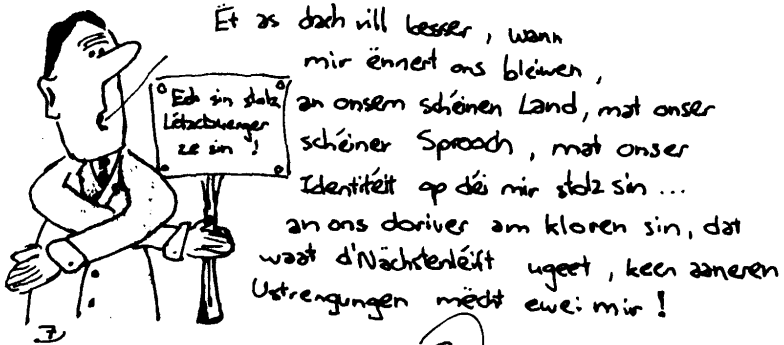 Ët as dach vill besser, wann
mir ënnert ons bleiwen,
an onsem schéinen Land, mat onser
schéiner Sprooch, mat onser
Identitéit op déi mir stolz sin...
an ons doriver am kloren sin, dat
waat d'Nächstenléift ugeet, keen aaneren
Ustrengungen mëcht ewei mir!
Ech sin stolz
Lëtzebuerger
ze sin!
7